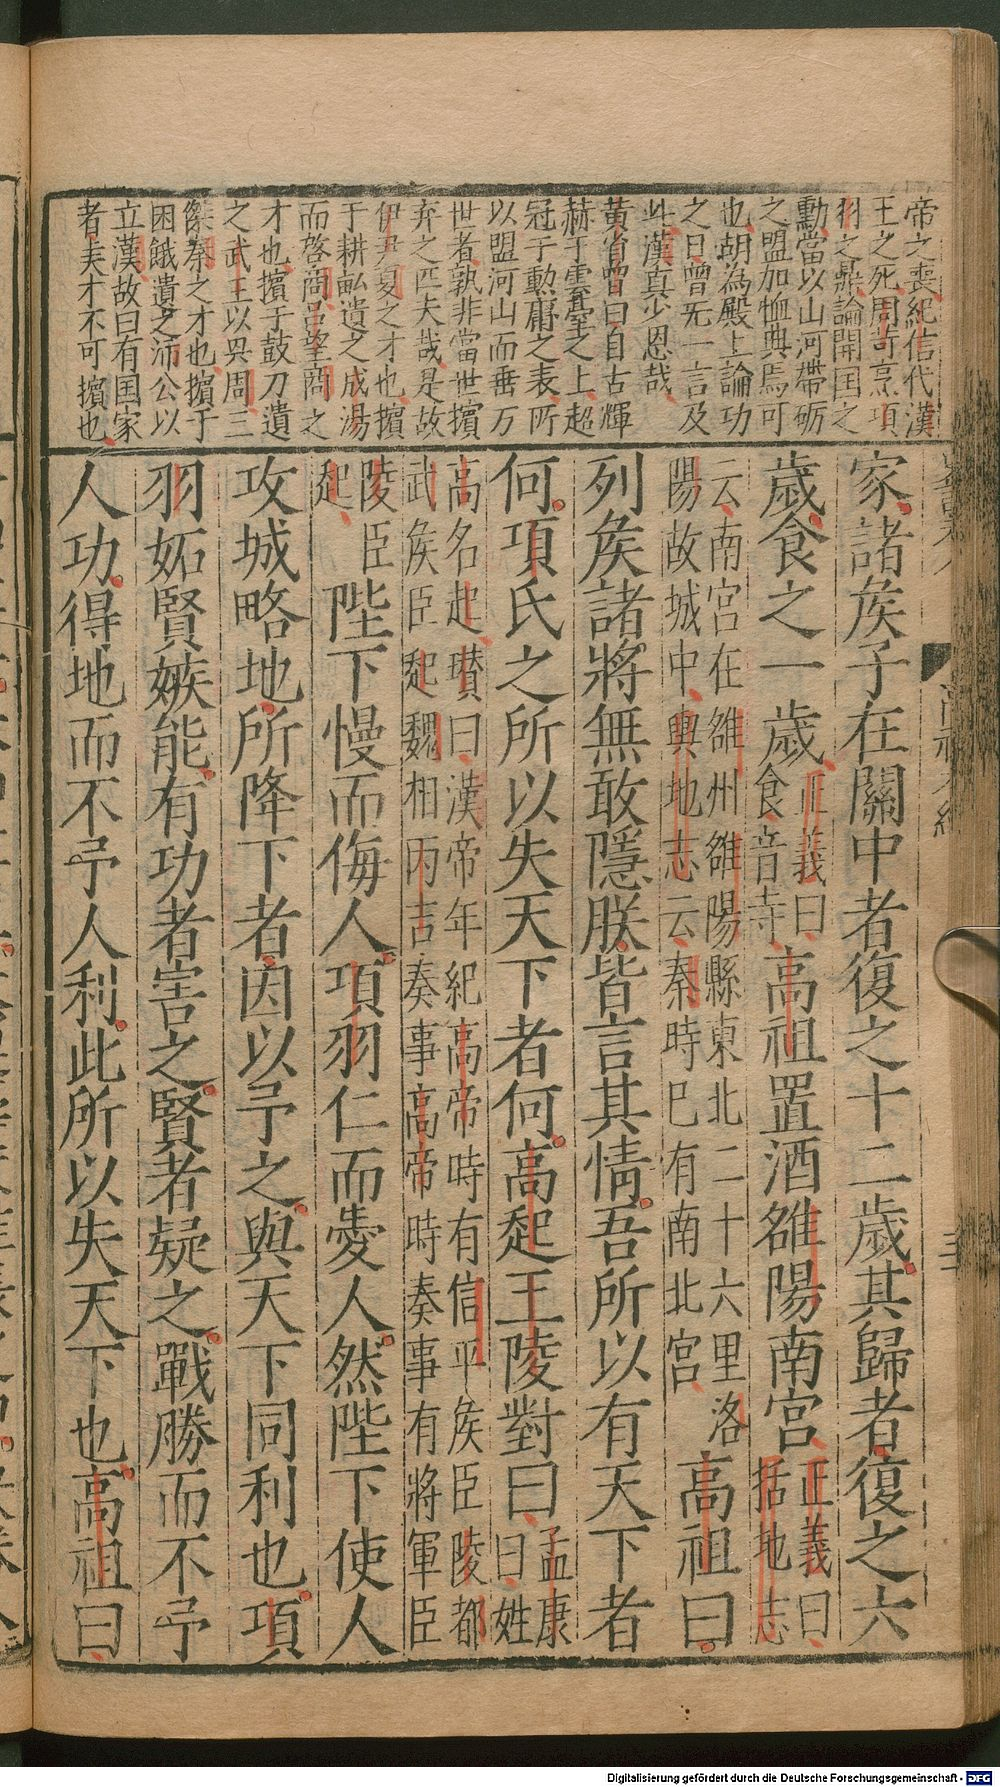 帝之喪紀信代漢
王之死周苛烹項
羽之鼎論開囯之
勳當以山河帶礪
之盟加恤典焉可
也胡為殿上論功
之日曾无一言及
此漢真少恩哉
黃省曾曰自古輝
赫于雲臺之上超
冠于勳庸之表所
以盟河山而垂万
世者孰非當世擯
弃之匹夫哉是故
伊尹夏之才也擯
于耕畝遺之成湯
而啓商呂望商之
才也擯于鼓刀遺
之武王以興周三
傑秦之才也擯于
困餓遺之沛公以
立漢故曰有国家
者夫才不可擯也
家諸矦子在關中者復之十二歲其歸者復之六
歲食之一歲
正義曰
食音寺
高祖置酒雒陽南宮
正義曰
括地志
云南宮在雒州雒陽縣東北二十六里洛
陽故城中輿地志云秦時已有南北宮
高祖曰
列矦諸將無敢隱朕皆言其情吾所以有天下者
何項氏之所以失天下者何高起王陵對曰
孟康
曰姓
高名起瓚曰漢帝年紀高帝時有信平矦臣陵都
武矦臣起魏相丙吉奏事高帝時奏事有將軍臣
陵臣
起
陛下慢而侮人項羽仁而愛人然陛下使人
攻城略地所降下者因以予之與天下同利也項
羽妬賢嫉能有功者害之賢者疑之戰勝而不予
人功得地而不予人利此所以失天下也高祖曰
Digitalisierung gefördert durch die Deutsche Forschungsgemeinschaft - DFG